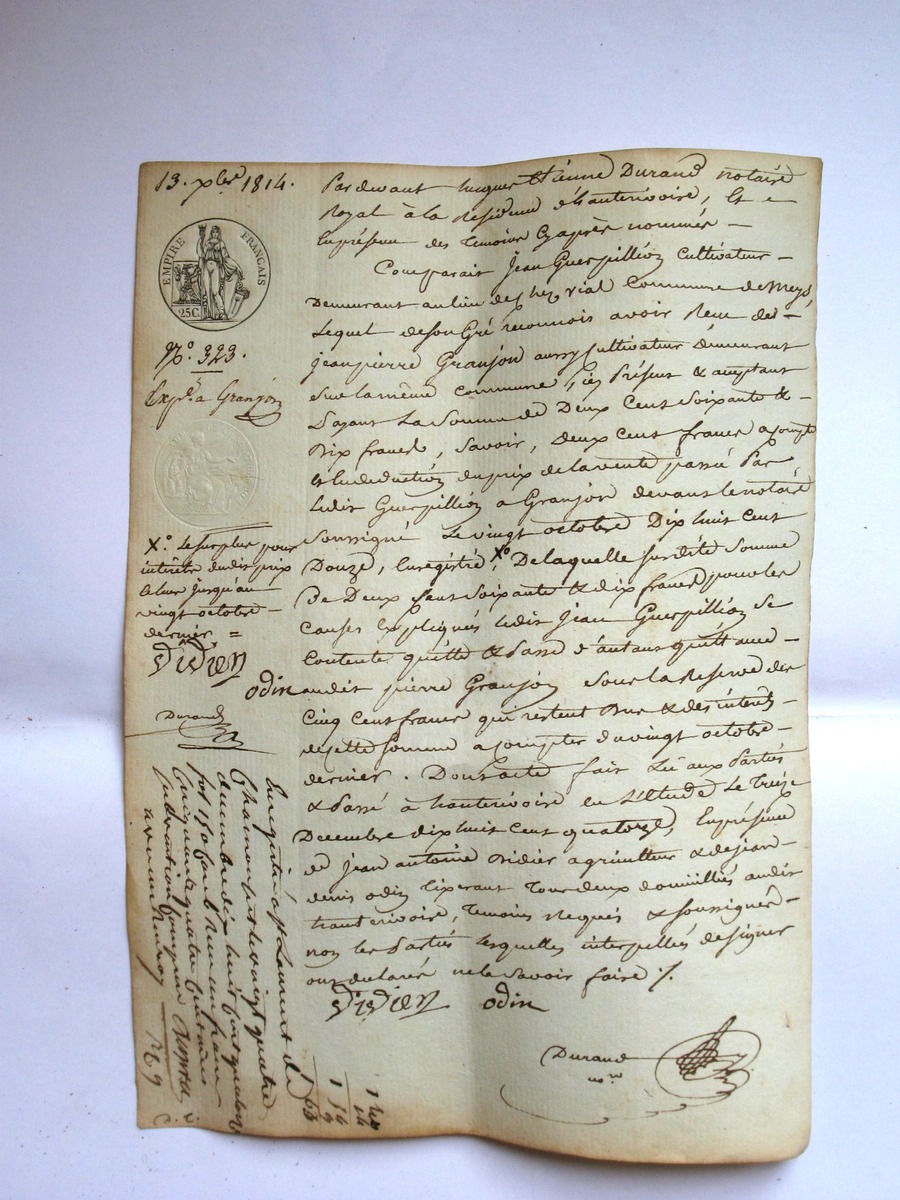 13. xbre 1814.
EMPIRE FRANÇAIS
25C.
No. 323.
Exp.on a Granjon
Pardevant Etienne Durand notaire
Royal à la Residence d'hauterivoire, Et e
Enprésence des temoins Cyaprès nommés —
Comparait Jean Guerpillion Cultivateur —
Demeurant aulieu de chez vial Commune de Meys
Lequel deson Gré reconnois avoir Recu de —
jeanpierre Granjon aussy Cultivateur demeurant
Surlamême commune, icy Présent & aceptant
La Somme de Deux Cent Soixante & —
Dix francs, Savoir, deux Cent francs acompte
& Endeduction duprix delavente passé Par
Ledit Guerpillion a Granjon devant lenotaire
Soussigné Levingt octobre Dix huit cent
Douze, Enregistré, Xo. Delaquelle susdite Somme
De Deux Cent Soixante & dix francs pour les
Causes Expliqués ledit Jean Guerpillion Se
Contente quitte & Passe d'autant quittance —
audit pierre Granjon Sous la Reserve des
Cinq Cent francs qui restent Dus & des interets
decette Somme acompter duvingt octobre —
dernier. Dont acte fait Lu aux Parties
& Passé à hauterivoire en L'étude Le Treize
Decembre dix huit cent quatorze, Enprésence
de jean antoine Didier agriculteur & de jean
denis odin tixerant Tous deux domiciliés audit
hauterivoire, Temoins Requis & soussignés —
non les Parties lesquelles interpellés de signer
ont declarés ne le savoir faire ./.
Didier odin
Durand
nore
Xo. Le surplus pour
intérêts dudit prix
Echus jusqu'au
vingt octobre —
dernier =
Didier
odin
Durand
Enregistré à St Laurent de
Chamousset le vingt quatre
decembre dix huit cent quatorze
fol 150 Recu un franc
Cinquante quatre Centimes
Subvention Comprise